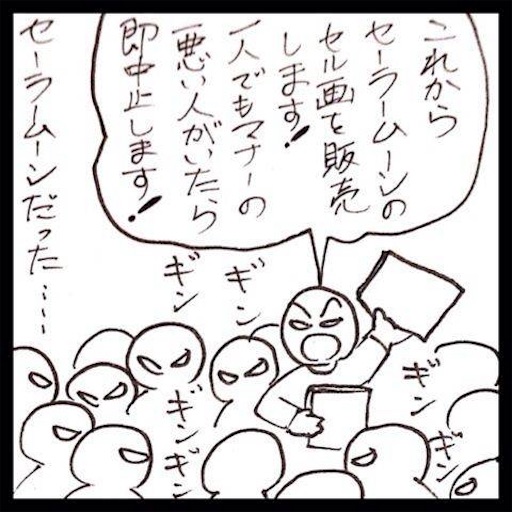 これから
セーラームーンの
セル画を販売
します!
一人でもマナーの
悪い人がいたら
即中止します!
セーラームーンだった……
ギン
ギン
ギン
ギン
ギン
ギン